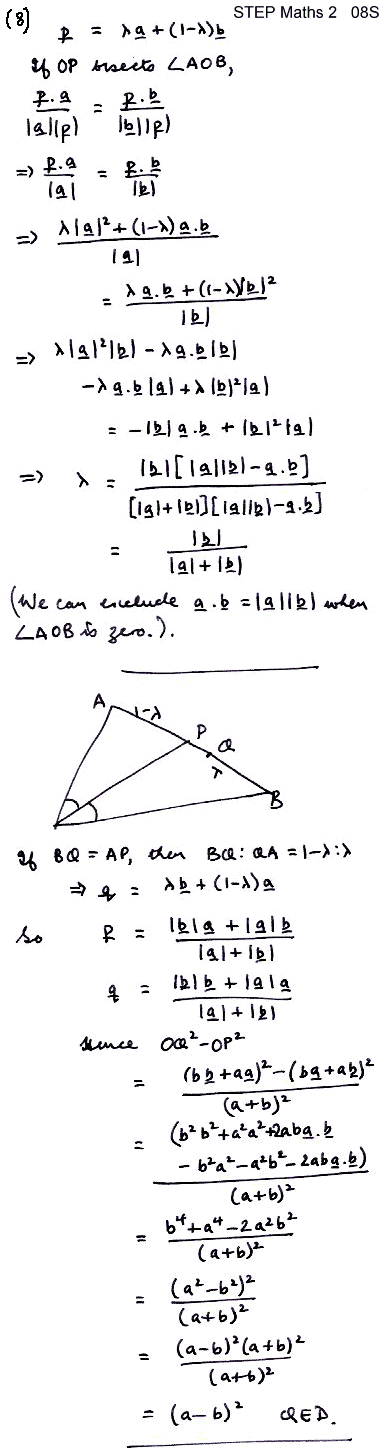 STEP Maths 2 08S
(8) p = λa + (1-λ)b
If OP bisects ∠AOB,
p.a / |a||p| = p.b / |b||p|
=> p.a / |a| = p.b / |b|
=> λ|a|² + (1-λ)a.b / |a|
= λa.b + (1-λ)|b|² / |b|
=> λ|a|²|b| - λa.b|b|
-λa.b|a| + λ|b|²|a|
= -|b|a.b + |b|²|a|
=> λ = |b|[|a||b| - a.b] / [|a|+|b|][|a||b|-a.b]
= |b| / |a|+|b|
(We can exclude a.b = |a||b| when
∠AOB is zero.).
A 1-λ P Q λ B
If BQ = AP, then BQ:QA = 1-λ:λ
=> q = λb + (1-λ)a
So p = |b|a + |a|b / |a|+|b|
q = |b|b + |a|a / |a|+|b|
Hence OQ² - OP²
= (bb+aa)² - (ba+ab)² / (a+b)²
= (b²b² + a²a² + 2aba.b
- b²a² - a²b² - 2aba.b) / (a+b)²
= b⁴ + a⁴ - 2a²b² / (a+b)²
= (a²-b²)² / (a+b)²
= (a-b)²(a+b)² / (a+b)²
= (a-b)² QED.